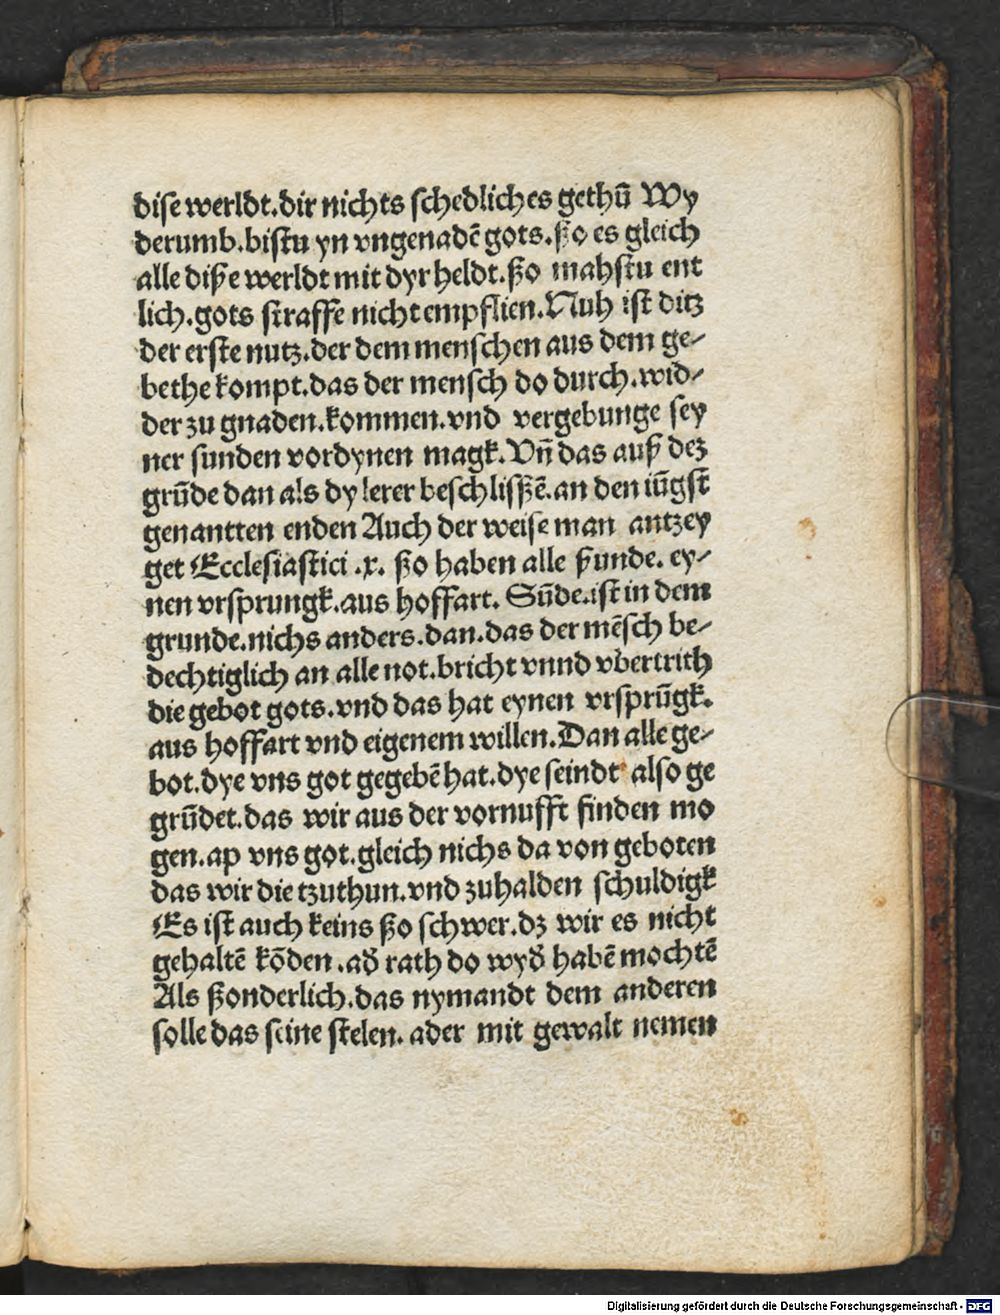 dise werldt.dir nichts schedliches gethū Wy
derumb.bistu yn vngenadē gots.ßo es gleich
alle diße werldt mit dyr heldt.ßo mahstu ent
lich.gots straffe nicht empflien.Nuh ist ditz
der erste nutz.der dem menschen aus dem ge⸗
bethe kompt.das der mensch do durch.wid⸗
der zu gnaden.kommen.vnd vergebunge sey
ner sunden vordynen magk.Vn̄ das auß dez
grūde dan als dy lerer beschlisßē.an den iūgst
genantten enden Auch der weise man antzey
get Ecclesiastici .x. ßo haben alle ßunde. ey⸗
nen vrsprungk.aus hoffart. Sūde.ist in dem
grunde.nichs anders.dan.das der mēsch be⸗
dechtiglich an alle not.bricht vnnd vbertrith
die gebot gots.vnd das hat eynen vrsprūgk.
aus hoffart vnd eigenem willen.Dan alle ge⸗
bot.dye vns got gegebē hat.dye seindt also ge
grūdet.das wir aus der vornufft finden mo
gen.ap vns got.gleich nichs da von geboten
das wir die tzuthun.vnd zuhalden schuldigk
Es ist auch keins ßo schwer.dz wir es nicht
gehaltē kōden .ad̄ rath do wyd̄ habē mochtē
Als ßonderlich.das nymandt dem anderen
solle das seine stelen. ader mit gewalt nemen
Digitalisierung gefördert durch die Deutsche Forschungsgemeinschaft - DFG